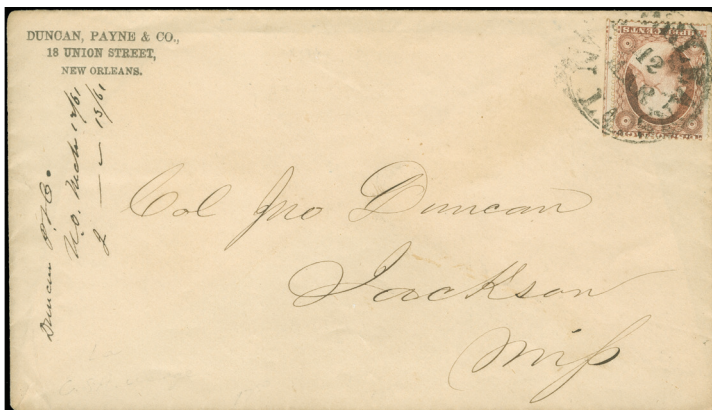 DUNCAN, PAYNE & CO.,
18 UNION STREET,
NEW ORLEANS.
Duncan P. & Co.
N.O. Mch 12/61
13/61
12
Col Jno Duncan
Jackson
Miſs